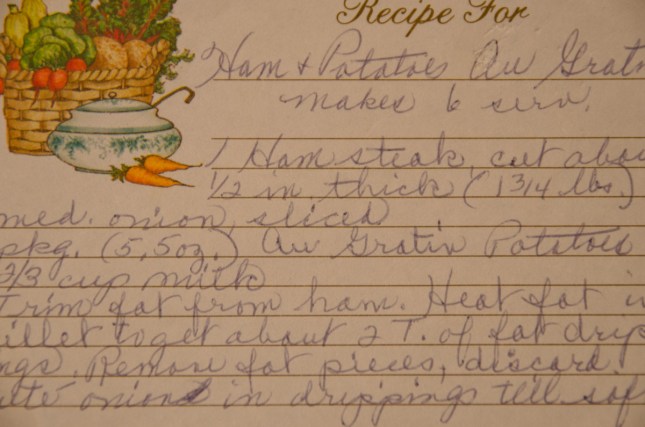 Recipe For
Ham & Potatoes Au Grati
makes 6 serv.
1 Ham steak, cut abou
1/2 in. thick (1 3/4 lbs.)
med. onion, sliced
pkg. (5.5oz.) Au Gratin Potatoes
2/3 cup milk
Trim fat from ham. Heat fat in
illet to get about 2 T. of fat drip
ngs. Remove fat pieces, discard.
ute onions in drippings till sof